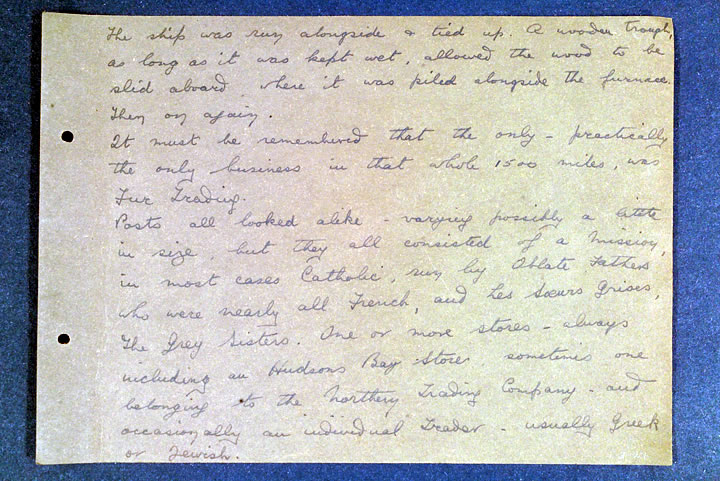 The ship was run alongside & tied up. A wooden trough,
as long as it was kept wet, allowed the wood to be
slid aboard, where it was piled alongside the furnace.
Then on again.
It must be remembered that the only - practically
the only business in that whole 1500 miles, was
Fur Trading.
Posts all looked alike - varying possibly a little
in size, but they all consisted of a Mission,
in most cases Catholic, run by Oblate Fathers
who were nearly all French, and Les Sœurs Grises,
The Grey Sisters. One or more stores - always
including an Hudsons Bay Store sometimes one
belonging to the Northern Trading Company - and
occasionally an individual Trader - usually Greek
or Jewish.